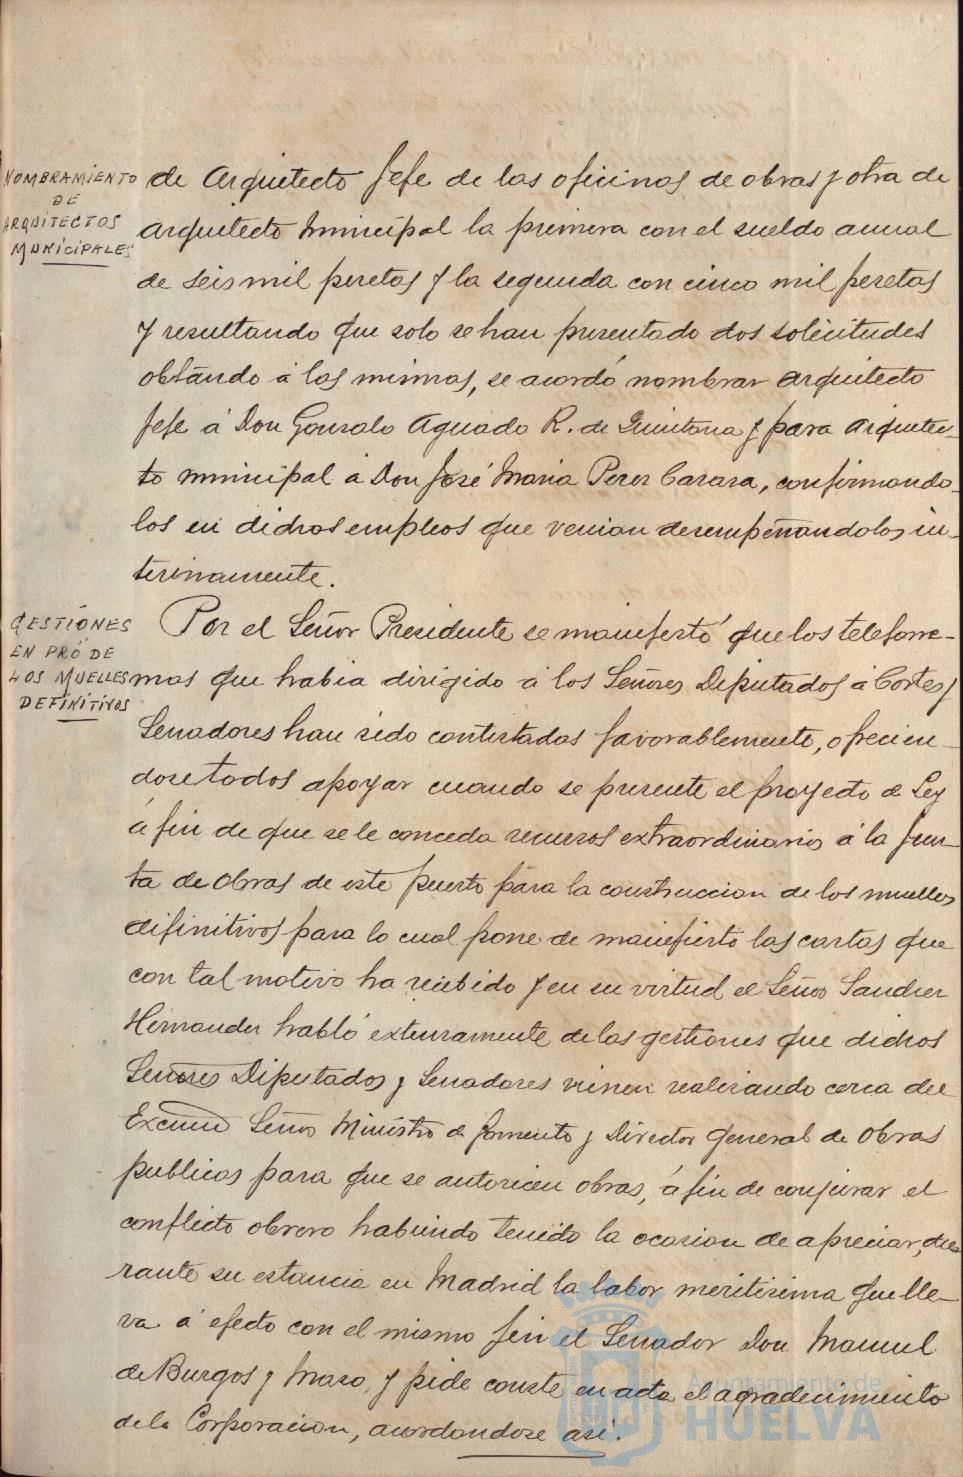 NOMBRAMIENTO
DE
ARQUITECTOS
MUNICIPALES
de Arquitecto Jefe de las oficinas de obras y otra de
arquitecto municipal la primera con el sueldo anual
de seis mil pesetas y la segunda con cinco mil pesetas
y resultando que solo se han presentado dos solicitudes
obtando á las mismas, se acordó nombrar arquitecto
Jefe á Don Gonzalo Aguado R. de Quintana y para arquitec-
to municipal á Don José Maria Perez Carasa, confirmando-
los en dichos empleos que venian desempeñandolos in-
terinamente.
GESTIONES
EN PRÓ DE
LOS MUELLES
DEFINITIVOS
Por el Señor Presidente se manifestó que los telefone-
mas que habia dirigido á los Señores Diputados á Cortes y
Senadores han sido contestados favorablemente, ofrecien-
dose todos apoyar cuando se presente el proyecto de Ley
á fin de que se le conceda recursos extraordinarios á la Jun-
ta de Obras de este puerto para la construccion de los muelles
difinitivos para lo cual pone de manifiesto las cartas que
con tal motivo ha recibido y en su virtud el Señor Sanchez
Hernandez habló extensamente de las gestiones que dichos
Señores Diputados y Senadores vienen realizando cerca del
Excmo Señor Ministro de Fomento y Director general de Obras
publicas para que se autoricen obras, á fin de conjurar el
conflicto obrero habiendo tenido la ocasion de apreciar, du-
rante su estancia en Madrid la labor meritisima que lle-
va á efecto con el mismo fin el Senador Don Manuel
de Burgos y Mazo, y pide conste en acta el agradecimiento
de la Corporacion, acordandose asi.
Ayuntamiento de
HUELVA